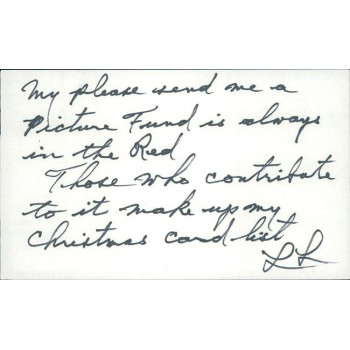 My please send me a
Picture Fund is always
in the Red
Those who contribute
to it make up my
Christmas card list
LL